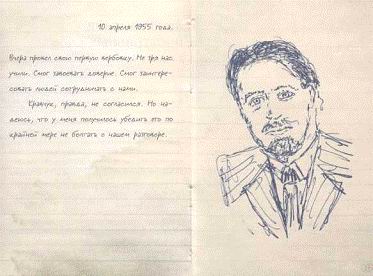 10 апреля 1955 года.
Вчера провел свою первую вербовку. Не зря нас
учили. Смог завоевать доверие. Смог заинтере-
совать людей сотрудничать с нами.
Кравчук, правда, не согласился. Но на-
деюсь, что у меня получилось убедить его по
крайней мере не болтать о нашем разговоре.